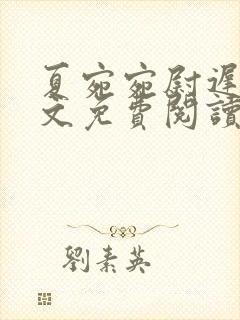 夏宛宛尉遲
文免費閱讀
劉素英